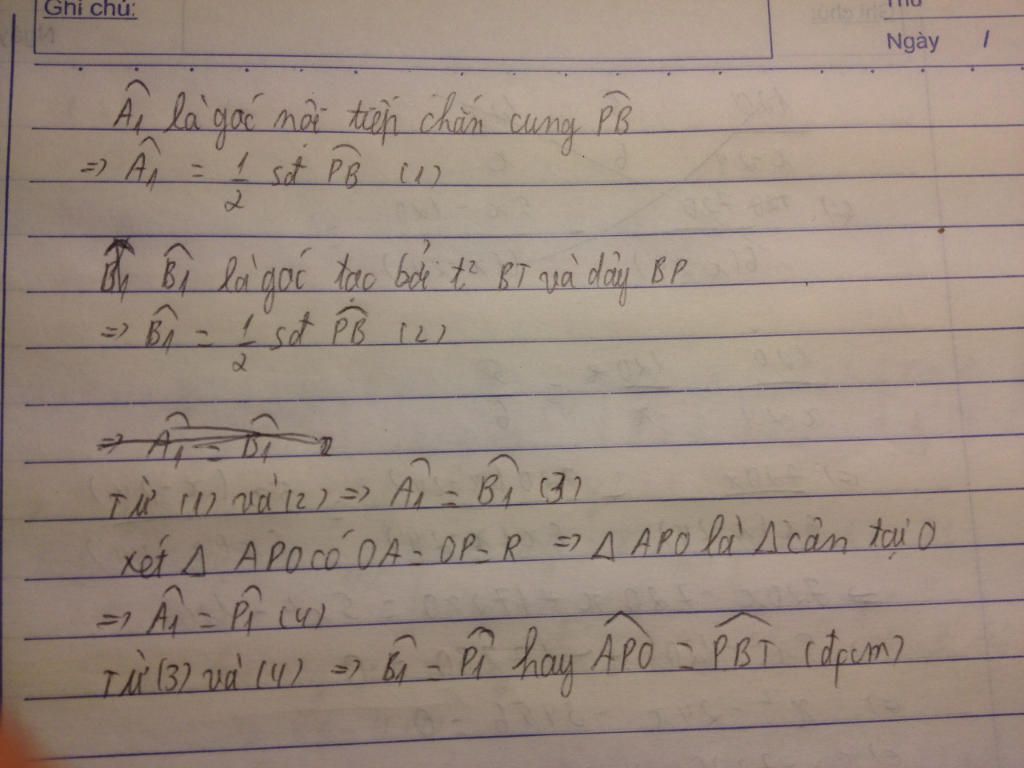 Ghi chú:
Thứ
Ngày /
Â₁ là góc nội tiếp chắn cung P͡B
=> Â₁ = 1/2 sđ P͡B (1)
B̂₁ là góc tạo bởi t² BT và dây BP
=> B̂₁ = 1/2 sđ P͡B (2)
=> Â₁ = B̂₁
Từ (1) và (2) => Â₁ = B̂₁ (3)
xét Δ APO có OA = OP = R => Δ APO là Δ cân tại O
=> Â₁ = P̂₁ (4)
Từ (3) và (4) => B̂₁ = P̂₁ hay A͡PO = P͡BT (đpcm)